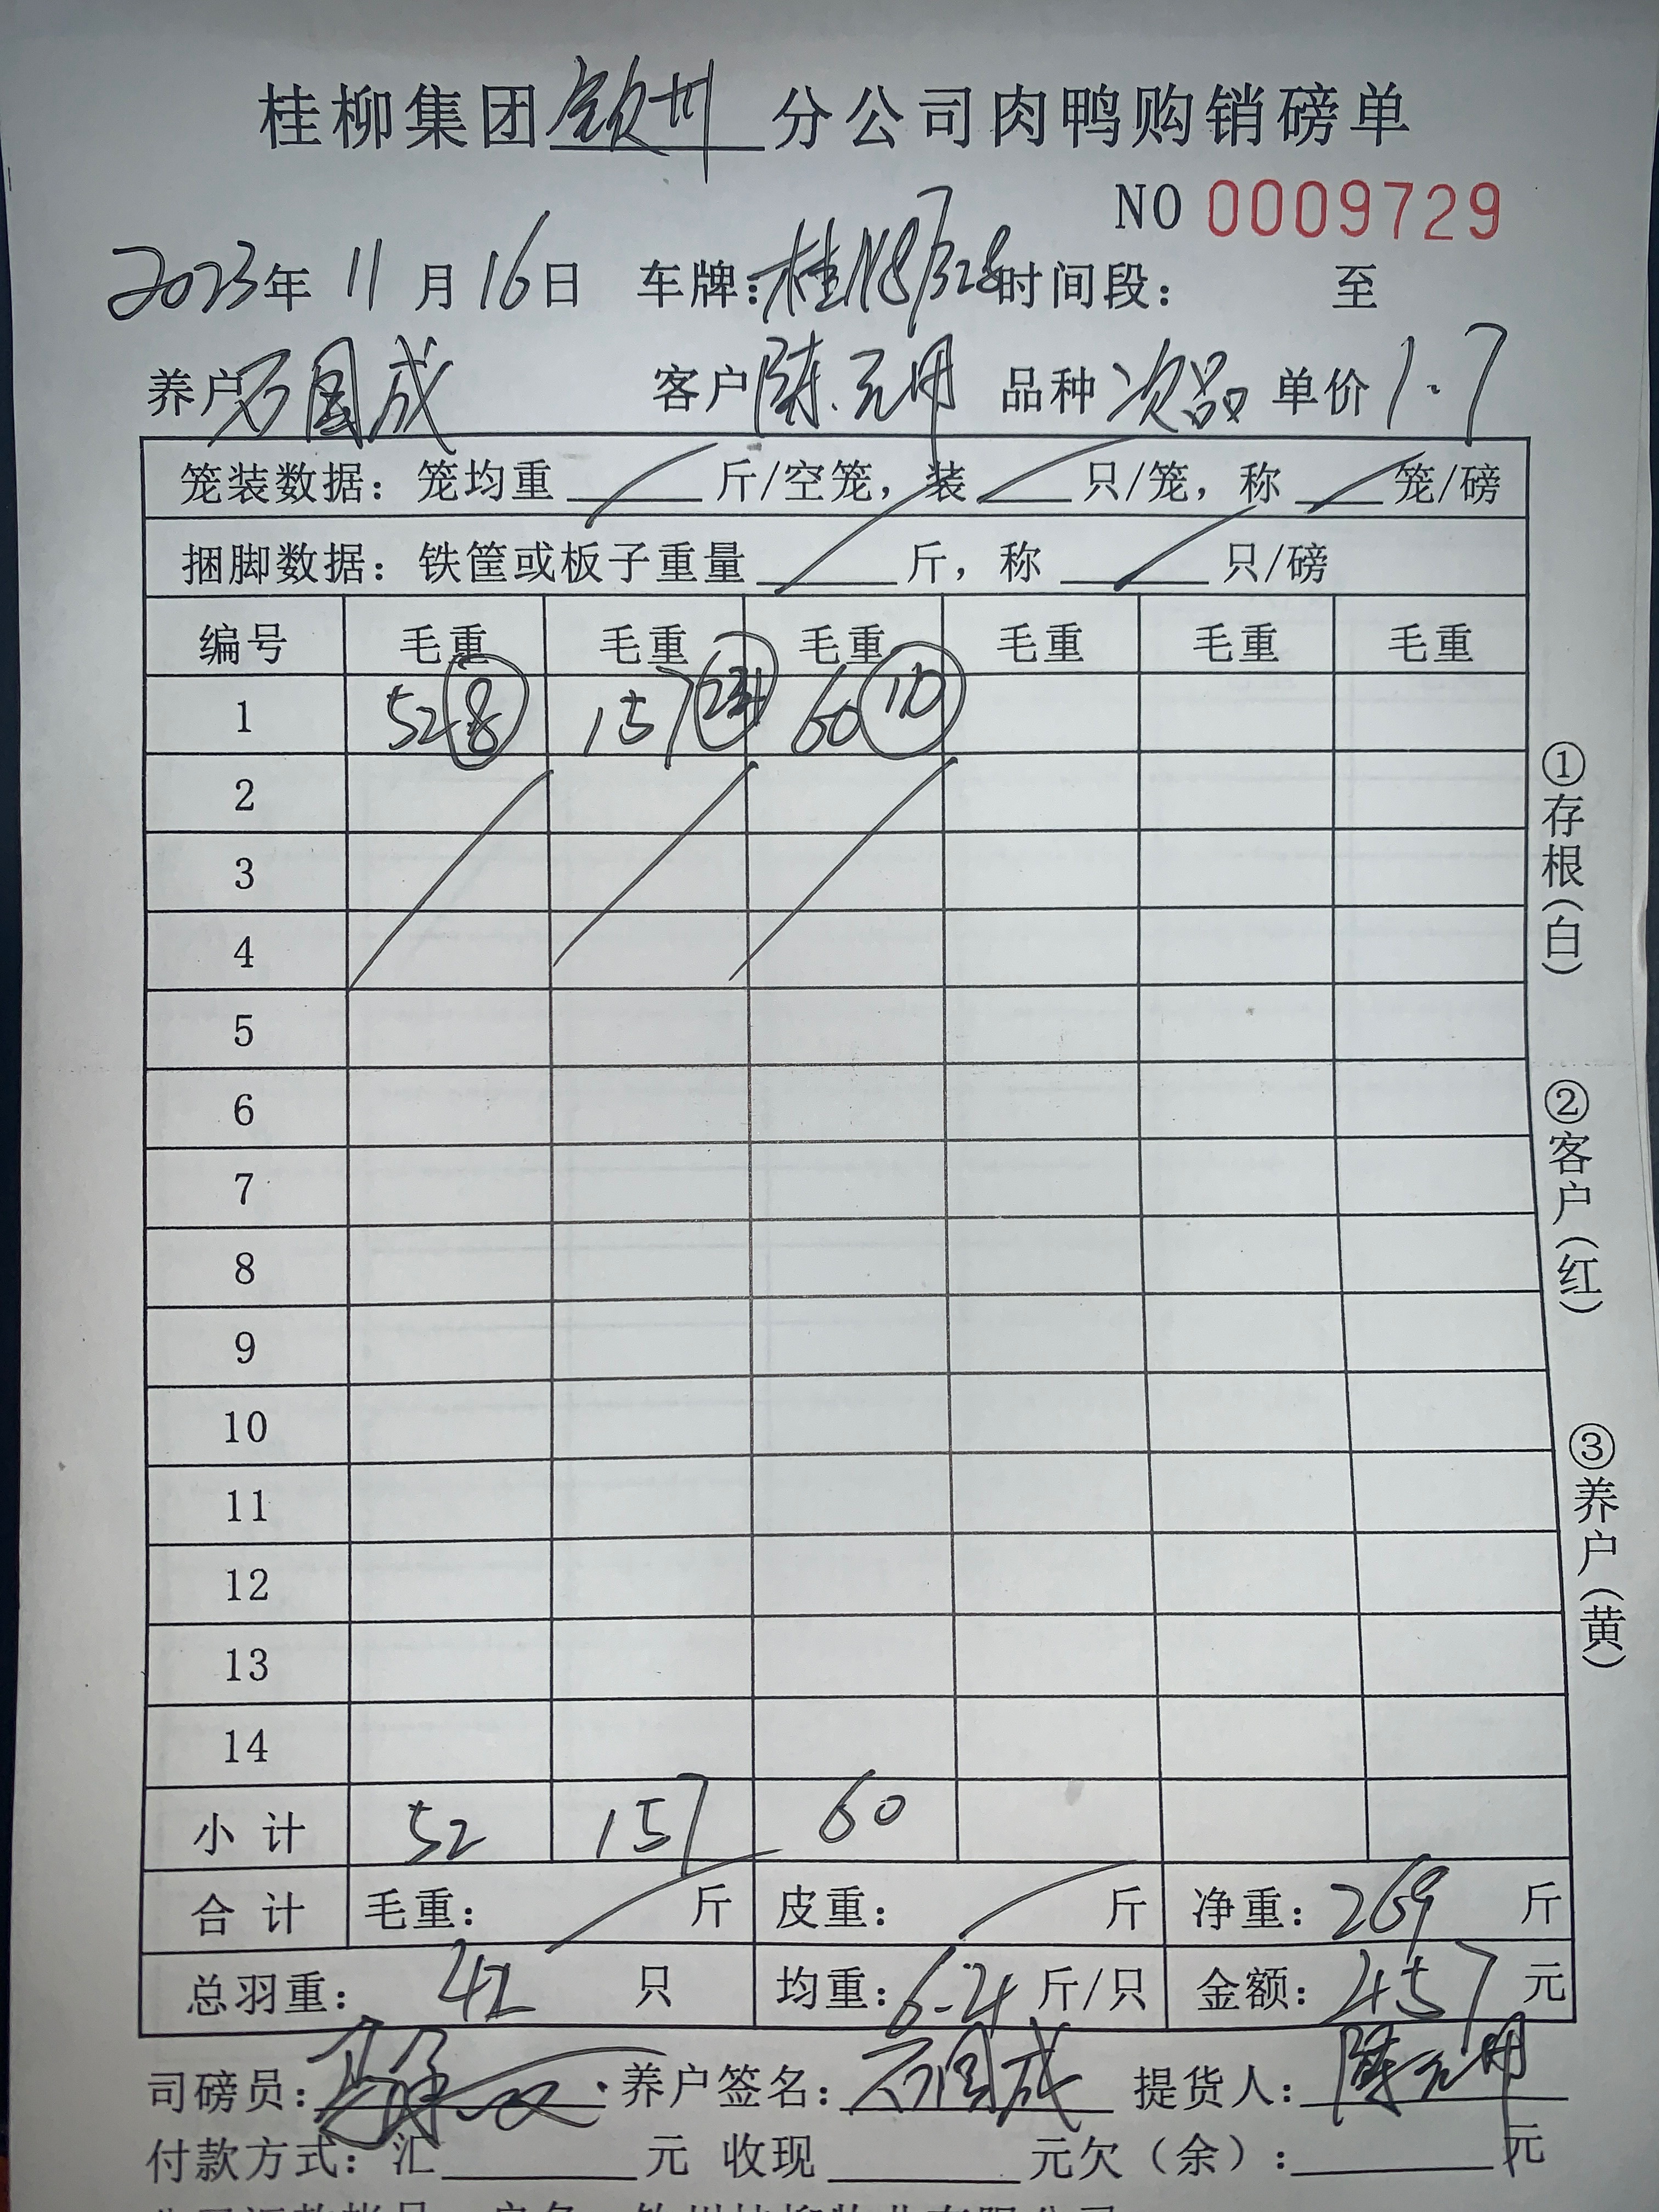 桂柳集团钦州分公司肉鸭购销磅单
NO 0009729
2023年11月16日 车牌: 时间段: 至
养户 国成 客户陈元丹 品种次品 单价1.7
笼装数据: 笼均重 斤/空笼, 装 只/笼, 称 笼/磅
捆脚数据: 铁筐或板子重量 斤, 称 只/磅
编号 毛重 毛重 毛重 毛重 毛重 毛重
1 52 8 157 60 10
2
3
4
5
6
7
8
9
10
11
12
13
14
小计 52 157 60
合计 毛重: 斤 皮重: 斤 净重: 269 斤
总羽重: 42 只 均重: 6.4 斤/只 金额: 457 元
司磅员: 养户签名: 国成 提货人: 陈元丹
付款方式: 汇 元 收现 元欠(余): 元
①存根(白)
②客户(红)
③养户(黄)